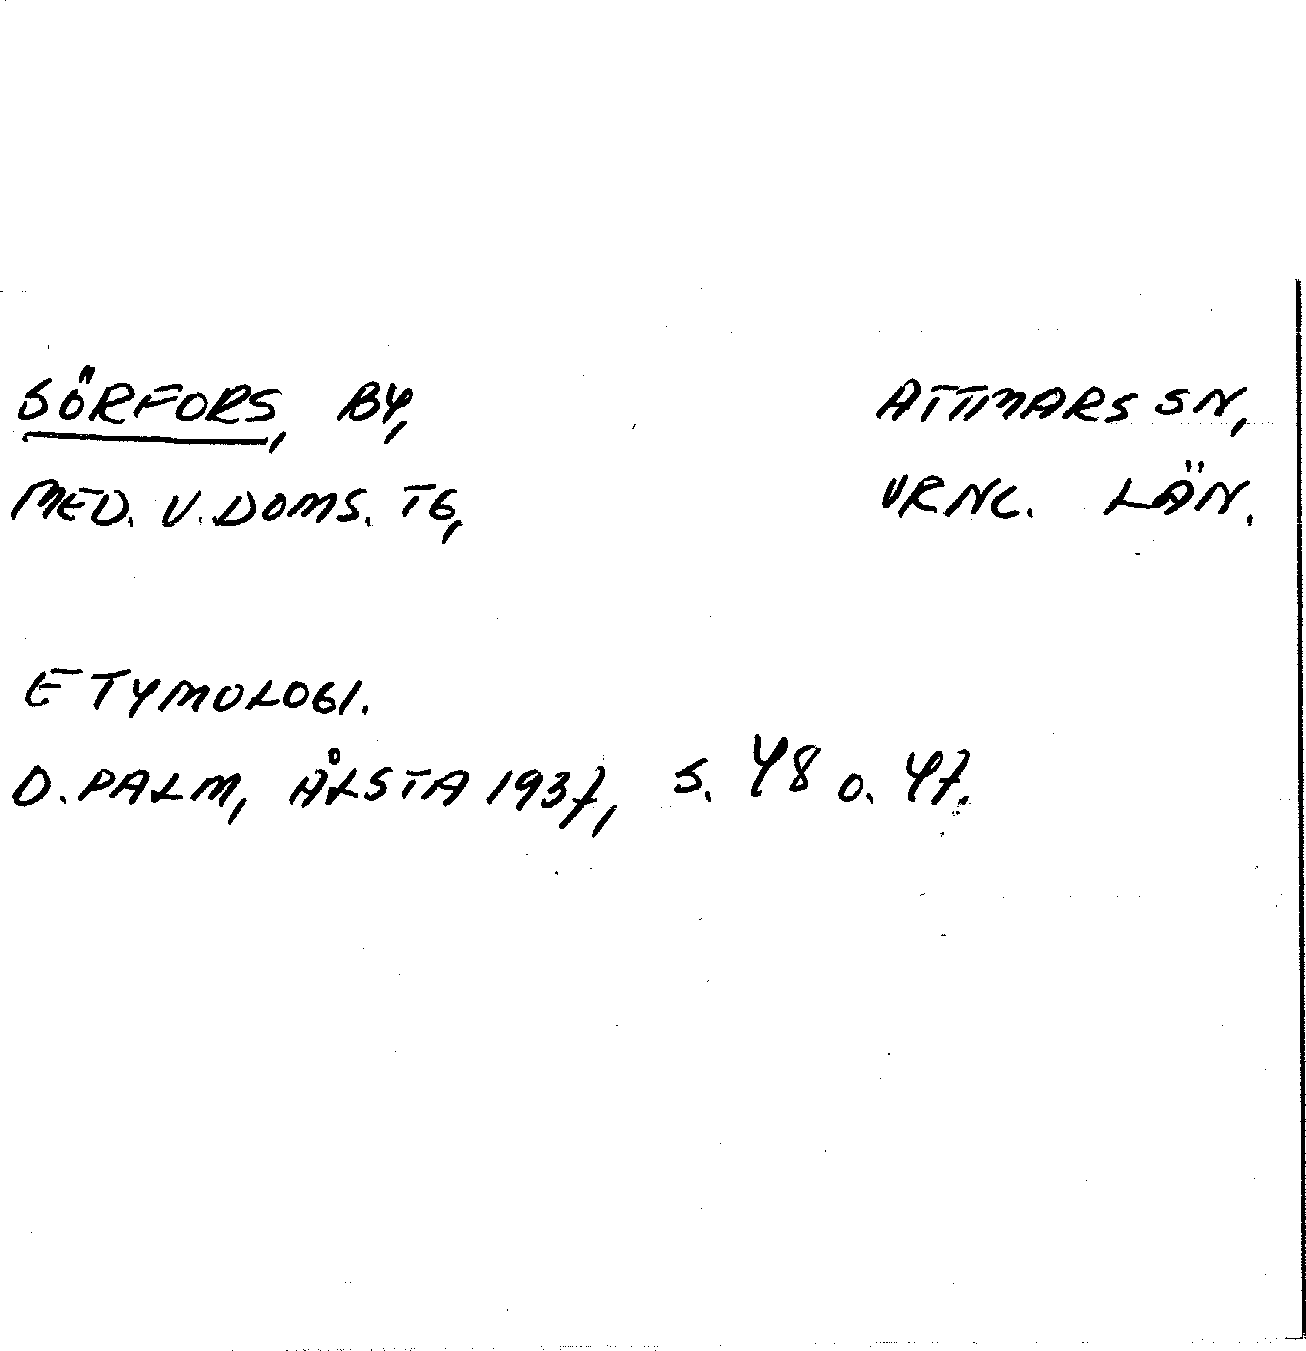 SÖRFORS, BY, ATTMARS SN,
MED. V. DOMS. TG, VRNL. LÄN.
ETYMOLOGI.
D. PALM, ÅLSTA 1937, S. 48 o. 47.